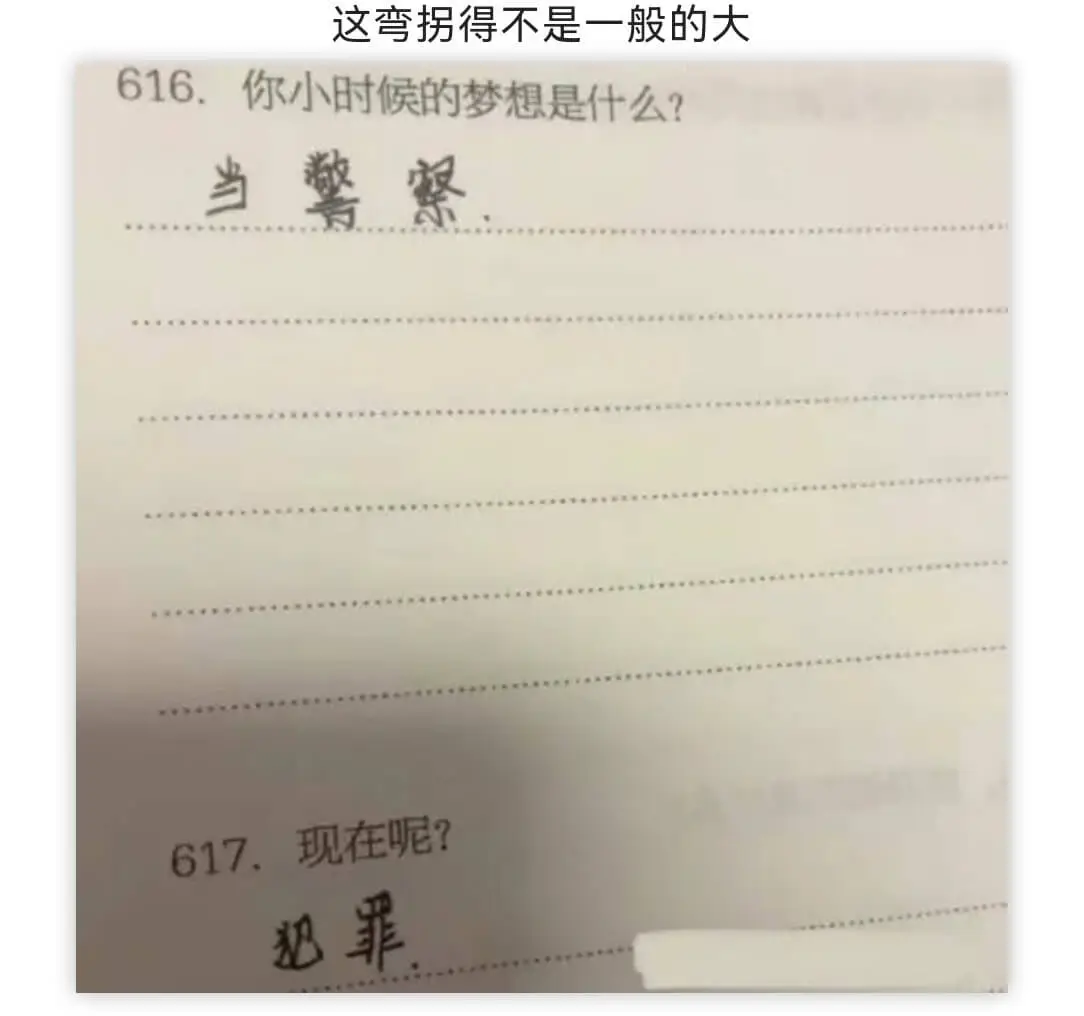 这弯拐得不是一般的大
616. 你小时候的梦想是什么?
当警察.
617. 现在呢?
犯罪.